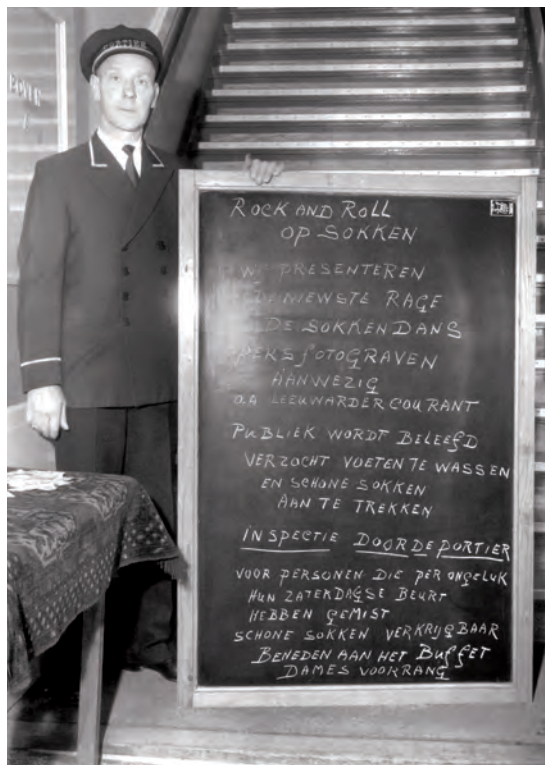 PORTIER
BOVEN
ROCK AND ROLL
OP SOKKEN
WIJ PRESENTEREN
DE NIEWSTE RAGE
DE SOKKENDANS
PERSFOTOGRAVEN
AANWEZIG
O.A LEEUWARDER COURANT
PUBLIEK WORDT BELEEFD
VERZOCHT VOETEN TE WASSEN
EN SCHONE SOKKEN
AAN TE TREKKEN
INSPECTIE DOOR DE PORTIER
VOOR PERSONEN DIE PER ONGELUK
HUN ZATERDAGSE BEURT
HEBBEN GEMIST
SCHONE SOKKEN VERKRIJGBAAR
BENEDEN AAN HET BUFFET
DAMES VOORRANG